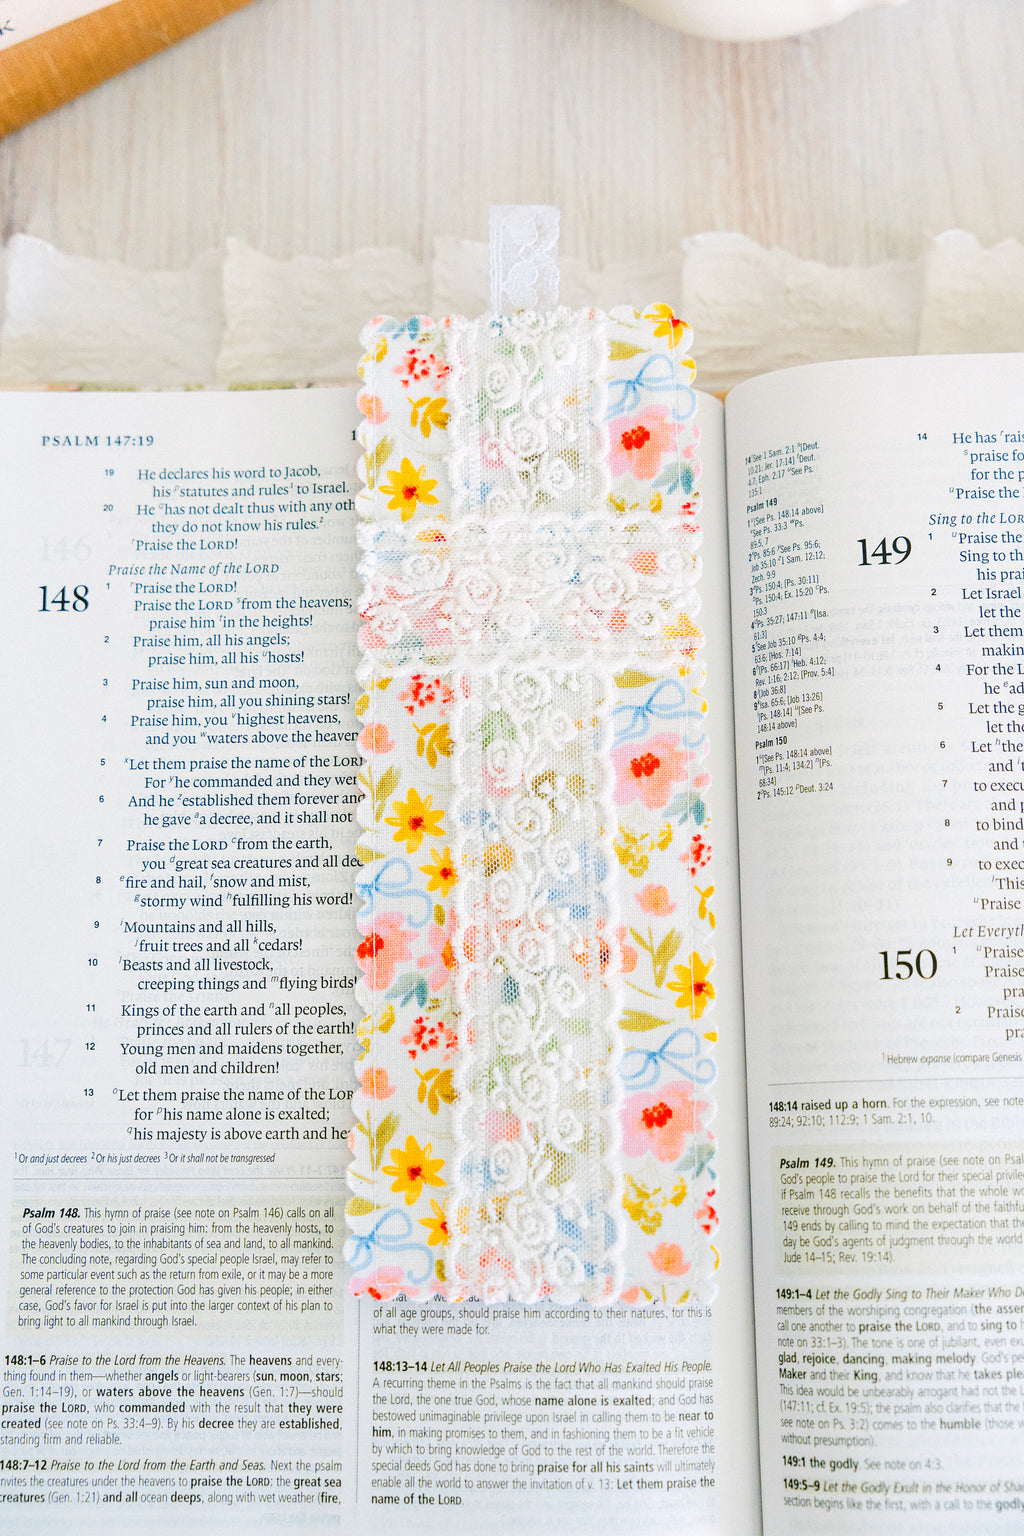 PSALM 147:19
19 He declares his word to Jacob,
his pstatutes and rules1 to Israel.
20 He qhas not dealt thus with any oth
they do not know his rules.2
rPraise the LORD!
Praise the Name of the LORD
148
1 rPraise the LORD!
Praise the LORD sfrom the heavens;
praise him tin the heights!
2 Praise him, all his angels;
praise him, all his uhosts!
3 Praise him, sun and moon,
praise him, all you shining stars!
4 Praise him, you vhighest heavens,
and you wwaters above the heaven
5 xLet them praise the name of the LORD
For yhe commanded and they wer
6 And he zestablished them forever and
he gave aa decree, and it shall not
7 Praise the LORD cfrom the earth,
you dgreat sea creatures and all dee
8 efire and hail, fsnow and mist,
gstormy wind hfulfilling his word!
9 iMountains and all hills,
jfruit trees and all kcedars!
10 lBeasts and all livestock,
creeping things and mflying birds!
11 Kings of the earth and nall peoples,
princes and all rulers of the earth!
12 Young men and maidens together,
old men and children!
13 oLet them praise the name of the LOR
for phis name alone is exalted;
qhis majesty is above earth and he
1 Or and just decrees 2 Or his just decrees 3 Or it shall not be transgressed
Psalm 148. This hymn of praise (see note on Psalm 146) calls on all
of God's creatures to join in praising him: from the heavenly hosts, to
the heavenly bodies, to the inhabitants of sea and land, to all mankind.
The concluding note, regarding God's special people Israel, may refer to
some particular event such as the return from exile, or it may be a more
general reference to the protection God has given his people; in either
case, God's favor for Israel is put into the larger context of his plan to
bring light to all mankind through Israel.
148:1–6 Praise to the Lord from the Heavens. The heavens and every-
thing found in them—whether angels or light-bearers (sun, moon, stars;
Gen. 1:14–19), or waters above the heavens (Gen. 1:7)—should
praise the LORD, who commanded with the result that they were
created (see note on Ps. 33:4–9). By his decree they are established,
standing firm and reliable.
148:7–12 Praise to the Lord from the Earth and Seas. Next the psalm
nvites the creatures under the heavens to praise the LORD: the great sea
creatures (Gen. 1:21) and all ocean deeps, along with wet weather (fire,
of all age groups, should praise him according to their natures, for this is
what they were made for.
148:13–14 Let All Peoples Praise the Lord Who Has Exalted His People.
A recurring theme in the Psalms is the fact that all mankind should praise
the Lord, the one true God, whose name alone is exalted; and God has
bestowed unimaginable privilege upon Israel in calling them to be near to
him, in making promises to them, and in fashioning them to be a fit vehicle
by which to bring knowledge of God to the rest of the world. Therefore the
special deeds God has done to bring praise for all his saints will ultimately
enable all the world to answer the invitation of v. 13: Let them praise the
name of the LORD.
14 See 1 Sam. 2:1 s[Deut.
10:21; Jer. 17:14] tDeut.
4:7; Eph. 2:17 uSee Ps.
135:1
Psalm 149
1 u[See Ps. 148:14 above]
vSee Ps. 33:3 wPs.
89:5, 7
2 xPs. 85:6 ySee Ps. 95:6;
Job 35:10 z1 Sam. 12:12;
Zech. 9:9
3 aPs. 150:4; [Ps. 30:11]
bPs. 150:4; Ex. 15:20 cPs.
150:3
4 dPs. 35:27; 147:11 e[Isa.
61:3]
5 fSee Job 35:10 gPs. 4:4;
63:6; [Hos. 7:14]
6 h[Ps. 66:17] iHeb. 4:12;
Rev. 1:16; 2:12; [Prov. 5:4]
8 j[Job 36:8]
9 kIsa. 65:6; [Job 13:26]
l[Ps. 148:14] u[See Ps.
148:14 above]
Psalm 150
1 u[See Ps. 148:14 above]
m[Ps. 11:4; 134:2] n[Ps.
68:34]
2 oPs. 145:12 pDeut. 3:24
14 He has rrais
spraise fo
for the p
uPraise the
Sing to the LOR
149
1 uPraise the
Sing to th
his prai
2 Let Israel
let the
3 Let them
makin
4 For the L
he ead
5 Let the g
let the
6 Let hthe
and i
7 to execu
and p
8 to bind
and
9 to exec
lThis
uPraise
Let Everyth
150
1 uPraise
Praise
pra
2 Praise
pra
1 Hebrew expanse (compare Genesis
148:14 raised up a horn. For the expression, see note
89:24; 92:10; 112:9; 1 Sam. 2:1, 10.
Psalm 149. This hymn of praise (see note on Psal
God's people to praise the Lord for their special privile
if Psalm 148 recalls the benefits that the whole wo
receive through God's work on behalf of the faithfu
149 ends by calling to mind the expectation that the
day be God's agents of judgment through the world
Jude 14–15; Rev. 19:14).
149:1–4 Let the Godly Sing to Their Maker Who De
members of the worshiping congregation (the assem
call one another to praise the LORD, and to sing to
note on 33:1–3). The tone is one of jubilant, even ex
glad, rejoice, dancing, making melody. God's pe
Maker and their King, and know that he takes plea
This idea would be unbearably arrogant had not the L
(147:11; cf. Ex. 19:5); the psalm also clarifies that the
see note on Ps. 3:2) comes to the humble (those w
without presumption).
149:1 the godly. See note on 4:3.
149:5–9 Let the Godly Exult in the Honor of Sha
section begins like the first, with a call to the godly